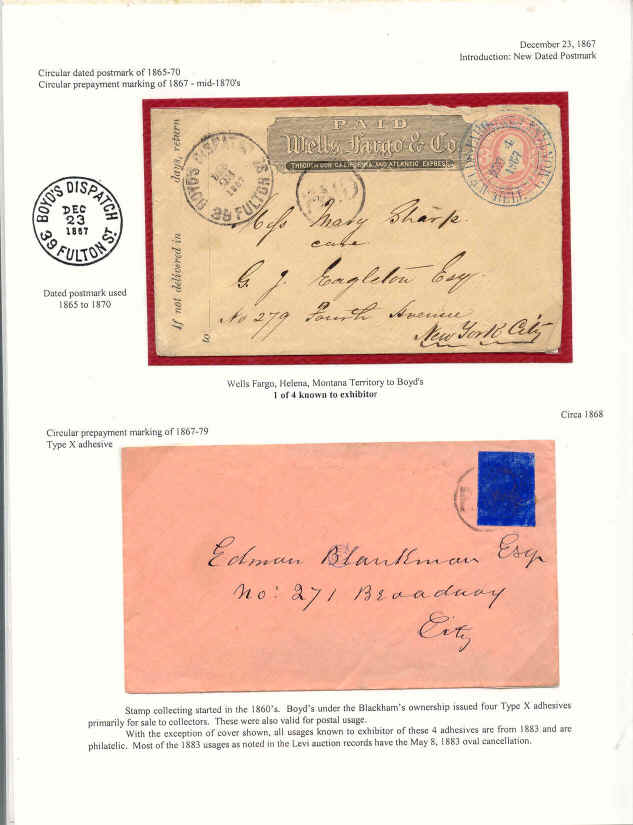 December 23, 1867
Introduction: New Dated Postmark
Circular dated postmark of 1865-70
Circular prepayment marking of 1867 - mid-1870's
PAID
Wells Fargo & Co.
THROUGH OUR CALIFORNIA AND ATLANTIC EXPRESS
If not delivered in
days, return
to
BOYD'S DISPATCH
DEC
23
1867
39 FULTON ST.
BOYD'S DISPATCH
DEC
23
1867
39 FULTON ST.
Miss Mary Sharp
care
G. J. Eagleton Esq.
No 279 Fourth Avenue
New York City
Dated postmark used
1865 to 1870
Wells Fargo, Helena, Montana Territory to Boyd's
1 of 4 known to exhibitor
Circa 1868
Circular prepayment marking of 1867-79
Type X adhesive
Edman Blankman Esq
No: 271 Broadway
City
Stamp collecting started in the 1860's. Boyd's under the Blackham's ownership issued four Type X adhesives
primarily for sale to collectors. These were also valid for postal usage.
With the exception of cover shown, all usages known to exhibitor of these 4 adhesives are from 1883 and are
philatelic. Most of the 1883 usages as noted in the Levi auction records have the May 8, 1883 oval cancellation.